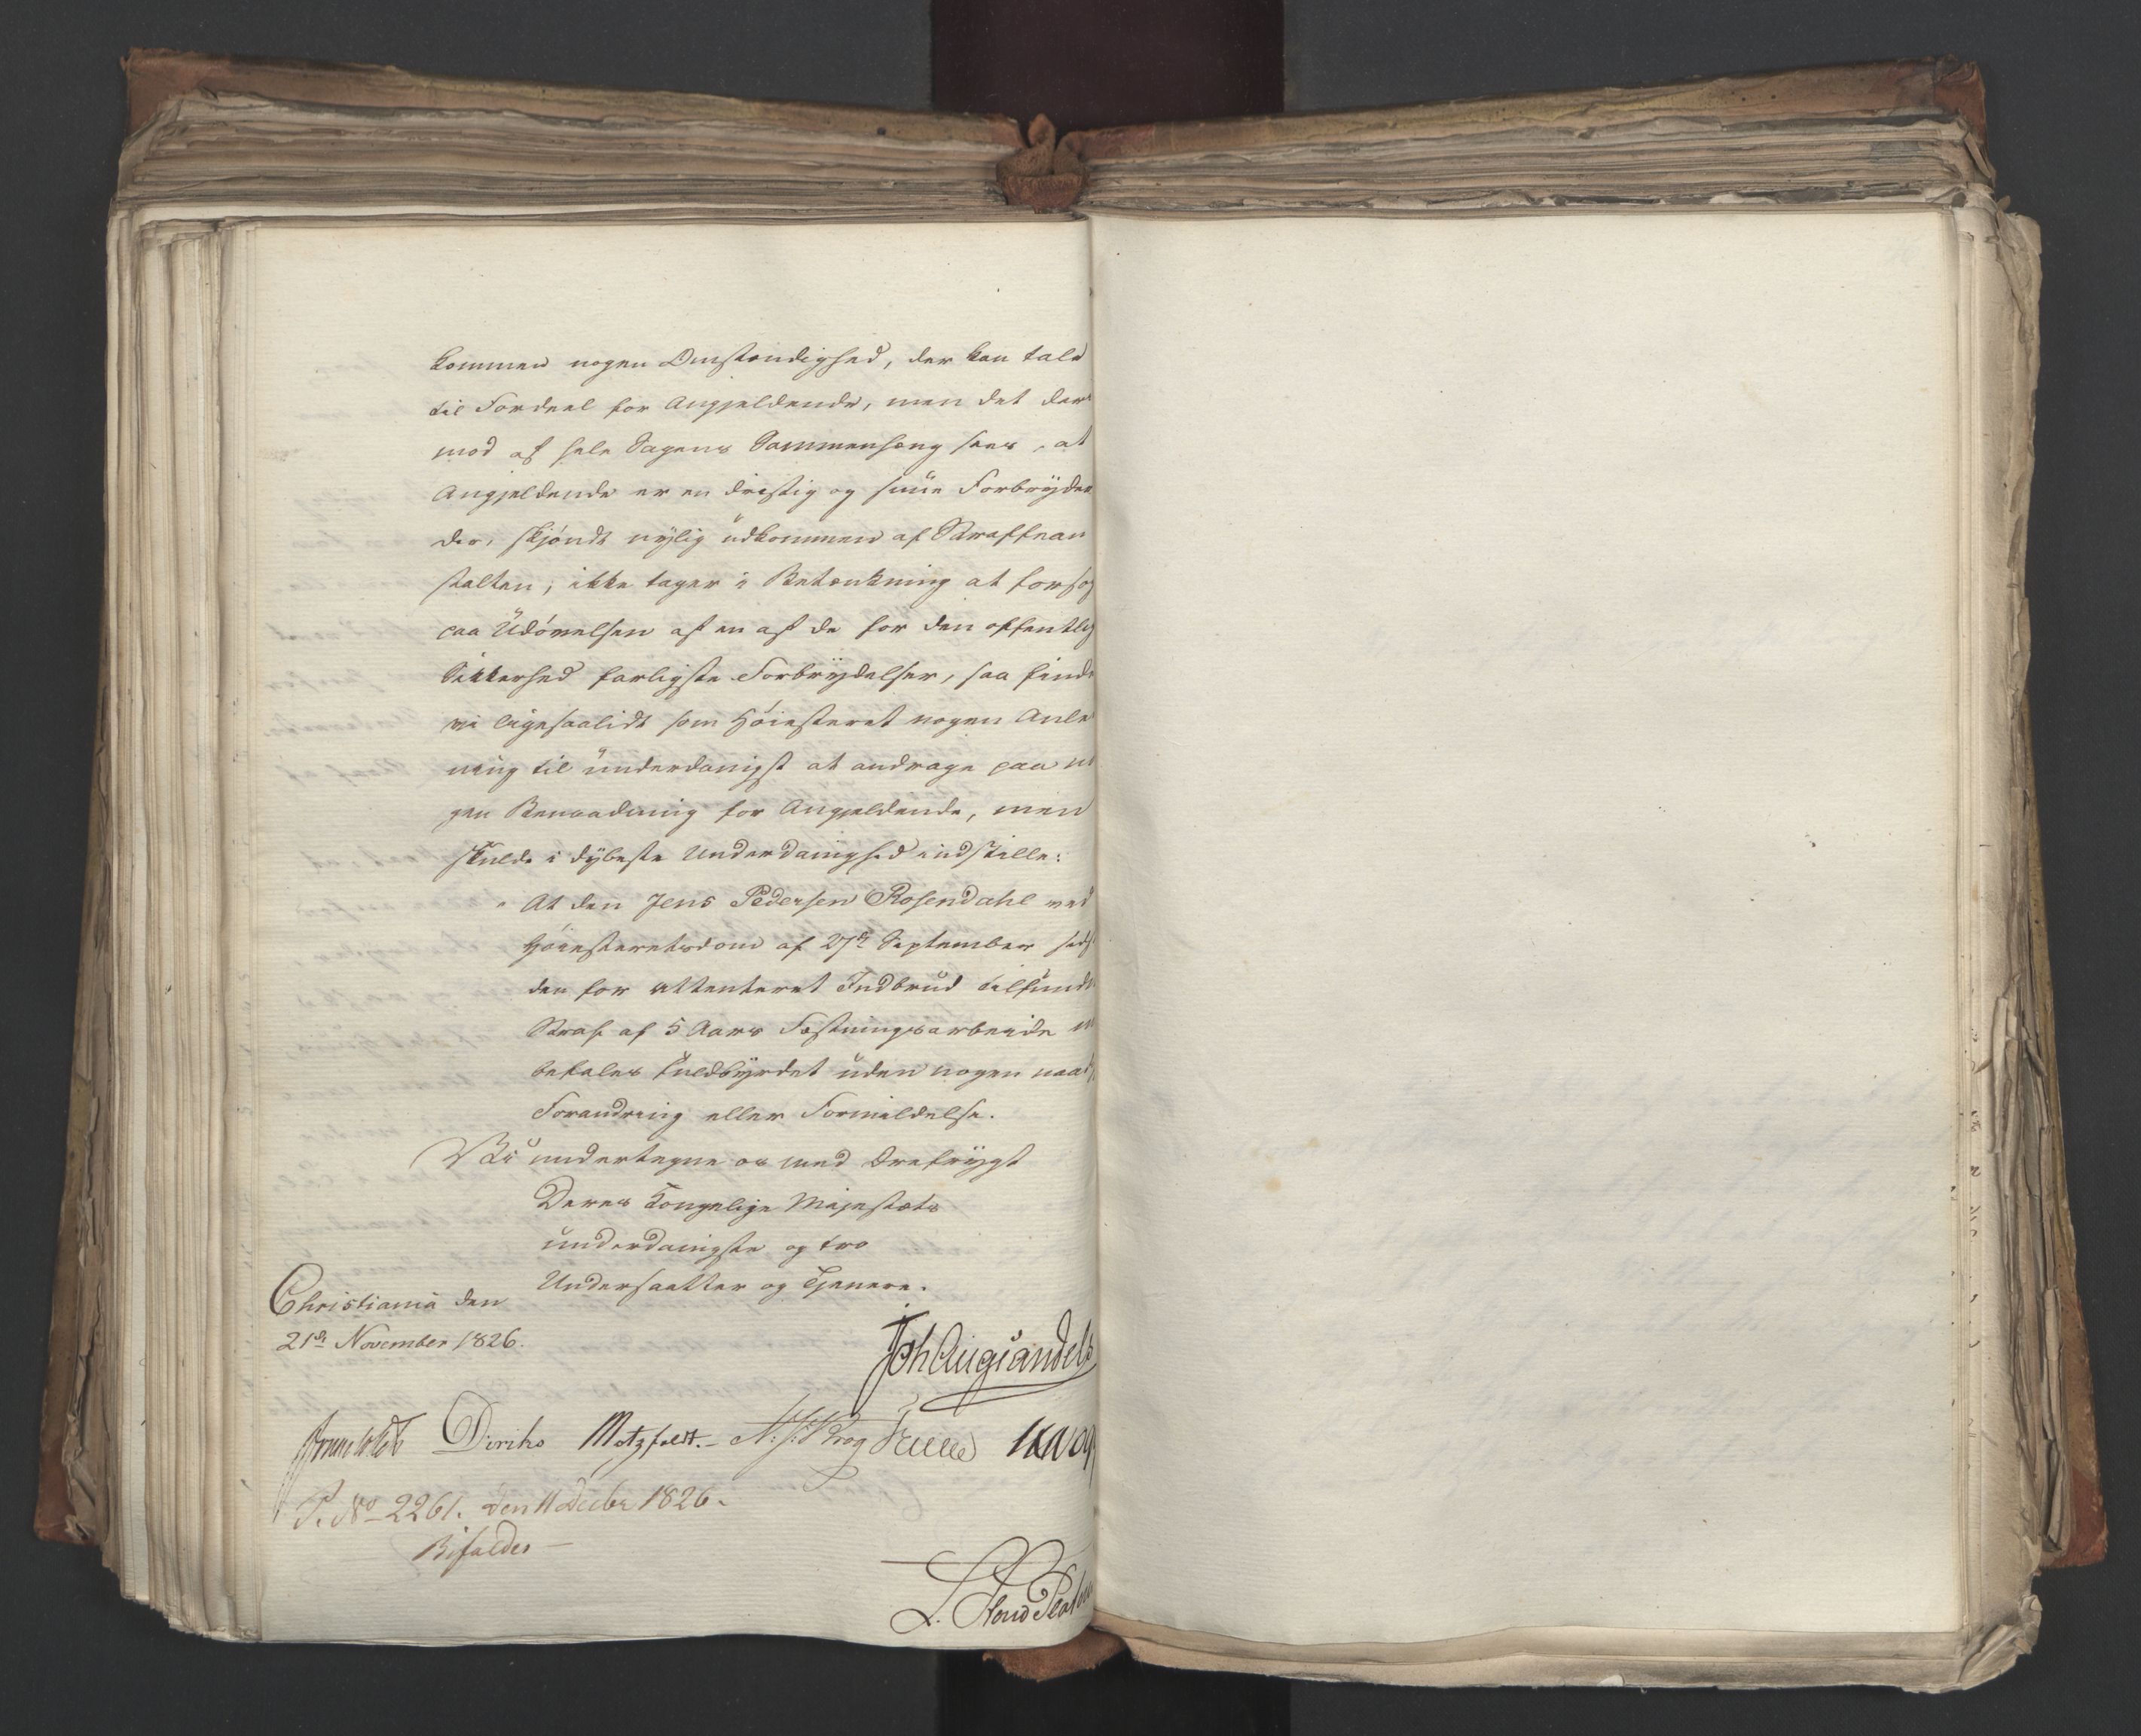 kommen nogen Omstændighed, der kan tale
til Fordeel for Angjeldende, men det der¬
mod af hele Sagens Sammenhæng sees, at
Angjeldende er en dristig og snue Forbryder
der, skjøndt nylig udkommen af Straffean
stalten, ikke tager i Betænkning at forsøg
paa Udøvelsen af en af de for den offentlig
Sikkerhed farligste Forbrydelser, saa finde
vi ligesaalidt som Høiesteret nogen Anled
ning til underdanigst at andrage paa no
gen Benaadning for Angjeldende, men
skulde i dybeste Underdanighed indstille:
At den Jens Pedersen Rosendahl ved
Høiesteretsdom af 27de September sidst
den for attenteret Indbrud tilfundne
Straf af 5 Aars Fæstningsarbeide
befales fuldbyrdet uden nogen naadig
Forandring eller Formildelse.
Vi undertegne os med Ærefrygt
Deres Kongelige Majestæts
underdanigste og tro
Undersaatter og Tjenere.
Christiania den
21de November 1826.
Joh Aug Sandels
Diriks Motzfeldt. Krog
P. No 2261. den 11 Decbr 1826.
Bifaldes